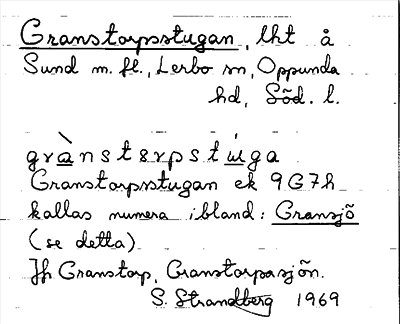 Granstorpsstugan, lht å
Sund m. fl., Lerbo sn, Oppunda
hd, Söd. l.
grànstɛrpstúga
Granstorpsstugan ek 9G7h
kallas numera ibland: Gransjö
(se detta)
Jfr Granstorp, Granstorpasjön.
S. Strandberg 1969